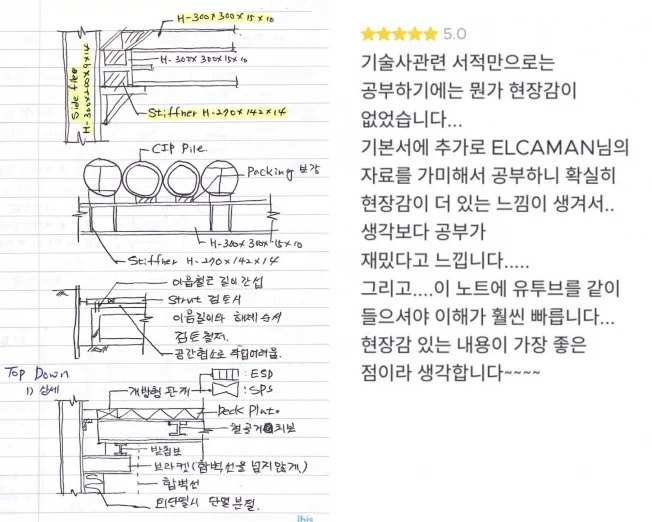 H-300×300×15×10
H-300×300×15×10
Side files
H-300×200×9×14
Stiffner H-270×142×14
CIP Pile.
Packing 보강
H-300×300×15×10
Stiffner H-270×142×14
이음철근 길이간섭
Strut 검토시
이음길이와 해체순서
검토철저.
공간협소로 작업어려움.
Top Down
1) 상세
: ESD
개방형 관계
: SPS
Deck Plate
철골거더보
받침보
브라켓(합벽선을 넘지않게.)
합벽선
외단열시 단열분절.
ibis
★★★★★ 5.0
기술사관련 서적만으로는
공부하기에는 뭔가 현장감이
없었습니다...
기본서에 추가로 ELCAMAN님의
자료를 가미해서 공부하니 확실히
현장감이 더 있는 느낌이 생겨서..
생각보다 공부가
재밌다고 느낍니다.....
그리고....이 노트에 유투브를 같이
들으셔야 이해가 훨씬 빠릅니다...
현장감 있는 내용이 가장 좋은
점이라 생각합니다~~~~